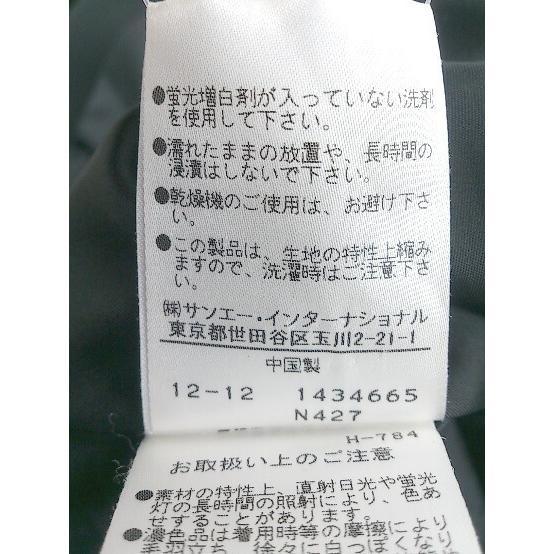 ●蛍光増白剤が入っていない洗剤
を使用して下さい。
●濡れたままの放置や、長時間の
浸漬はしないで下さい。
●乾燥機のご使用は、お避け下さ
い。
●この製品は、生地の特性上縮み
ますので、洗濯時はご注意下さ
い。
㈱サンエー・インターナショナル
東京都世田谷区玉川2-21-1
中国製
12-12 1434665
N427
H-784
お取扱い上のご注意
●素材の特性上、直射日光や蛍光
灯の長時間の照射により、色あ
せすることがあります。
●濃色品は着用時等の摩擦により
毛羽立ち、徐々に白っぽくなり